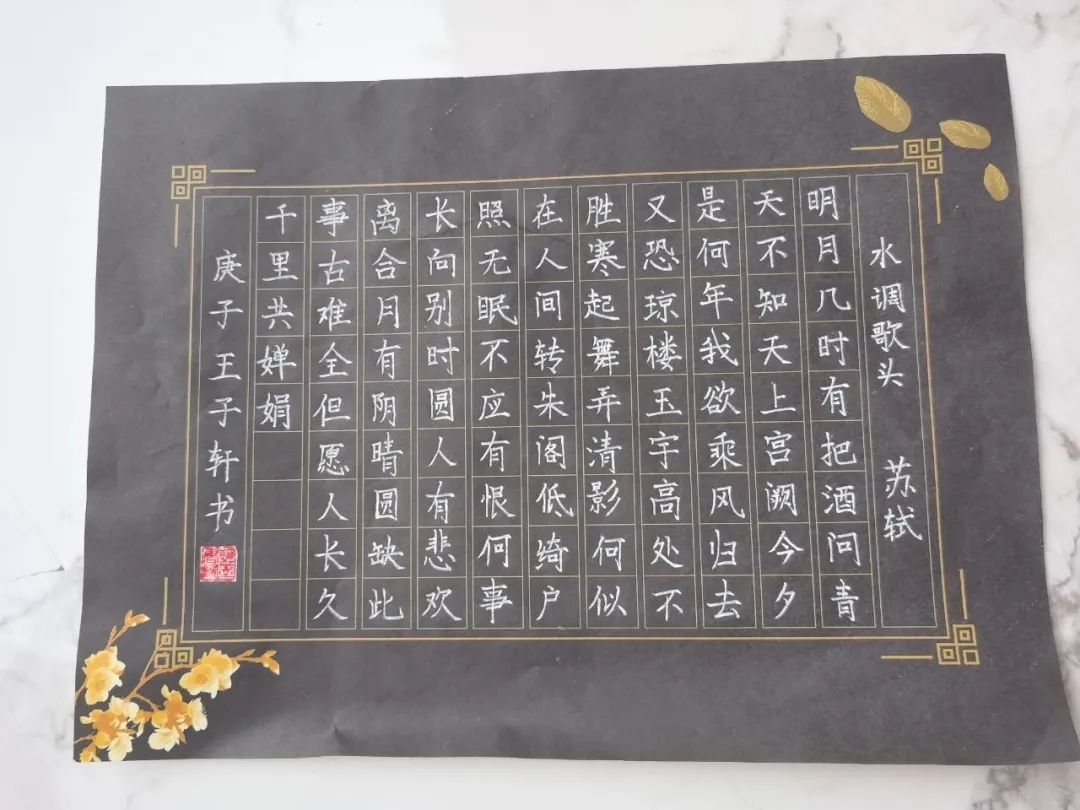 水调歌头 苏轼
明月几时有把酒问青
天不知天上宫阙今夕
是何年我欲乘风归去
又恐琼楼玉宇高处不
胜寒起舞弄清影何似
在人间转朱阁低绮户
照无眠不应有恨何事
长向别时圆人有悲欢
离合月有阴晴圆缺此
事古难全但愿人长久
千里共婵娟
庚子王子轩书